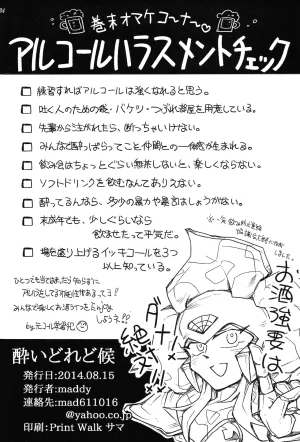 巻末オマケコ〜ナ〜♡
アルコールハラスメントチェック
□ 練習すればアルコールは強くなれると思う。
□ 吐く人のための袋・バケツ・つぶれ部屋を用意している。
□ 先輩から注がれたら、断っちゃいけない。
□ みんなで酔っぱらってこそ仲間との一体感が生まれる。
□ 飲み会はちょっとぐらい無茶しないと、楽しくならない。
□ ソフトドリンクを飲むなんてありえない。
□ 酔ってるんなら、多少の暴力や暴言はしょうがない。
□ 未成年でも、少しぐらいなら
飲ませたって平気だ。
□ 場を盛り上げるイッキコールを3つ
以上知っている。
お酒強要は
ダナ!!
絶対!!
酔いどれど候
発行日:2014.08.15
発行者:maddy
連絡先:mad611016
@yahoo.co.jp
印刷:Print Walk サマ